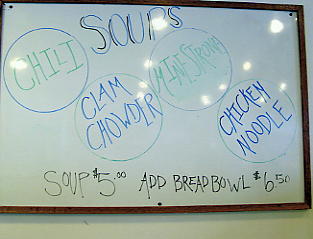 SOUPS
CHILI
CLAM
CHOWDER
MINESTRONE
CHICKEN
NOODLE
SOUP $5.00 ADD BREAD BOWL $6.50